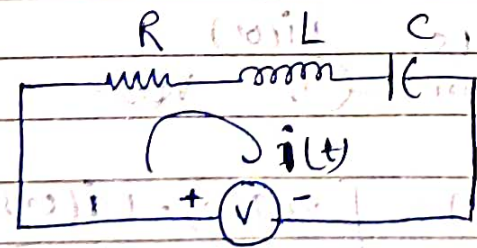 R L C
i(t)
+ V -